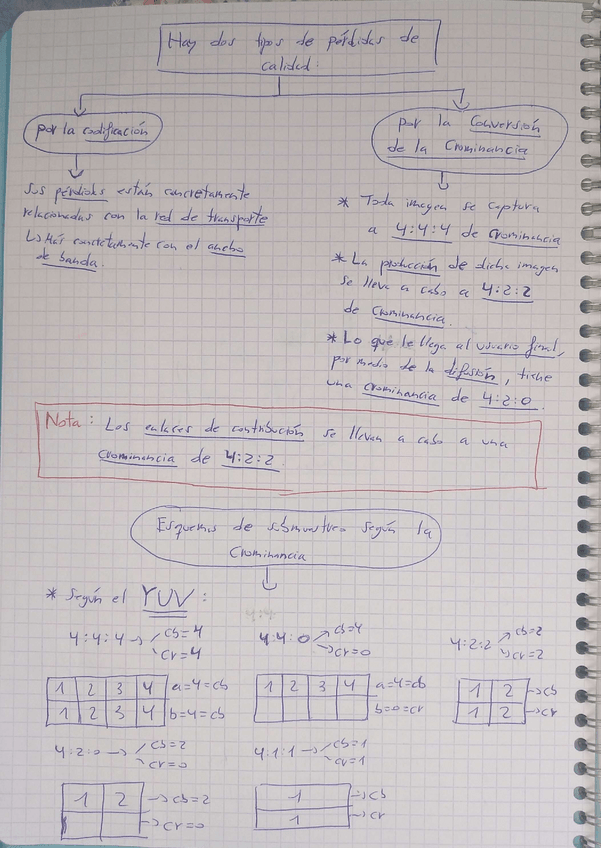 Hay dos tipos de pérdidas de
calidad.
por la codificación
Sus pérdidas están concretamente
relacionadas con la red de transporte
↳ Más concretamente con el ancho
de banda.
por la Conversión
de la Crominancia
* Toda imagen se captura
a 4:4:4 de crominancia
* La producción de dicha imagen
se lleva a cabo a 4:2:2
de crominancia.
* Lo que le llega al usuario final,
por medio de la difusión, tiene
una crominancia de 4:2:0.
Nota: Los enlaces de contribución se llevan a cabo a una
crominancia de 4:2:2.
Esquemas de submuestreo según la
Crominancia
* Según el YUV:
4:4:4 → cb=4
cr=4
1 2 3 4 a=4=cb
1 2 3 4 b=4=cb
4:4
4:4:0 cb=4
→ cr=0
1 2 3 4 a=4=cb
b=0=cr
4:2:2 cb=2
cr=2
1 2 → cb
1 2 → cr
4:2:0 → cb=2
cr=0
1 2 → cb=2
→ cr=0
4:1:1 → cb=1
cr=1
1 → cb
1 → cr